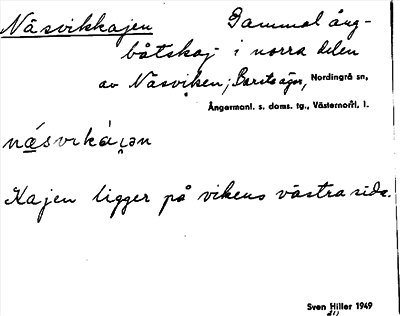 Näsvikkajen Gammal ång-
båtskaj i norra delen
av Näsviken; Barstaägor, Nordingrå sn,
Ångermanl. s. doms. tg., Västernorrl. l.
Kajen ligger på vikens västra sida.
Sven Hiller 1949